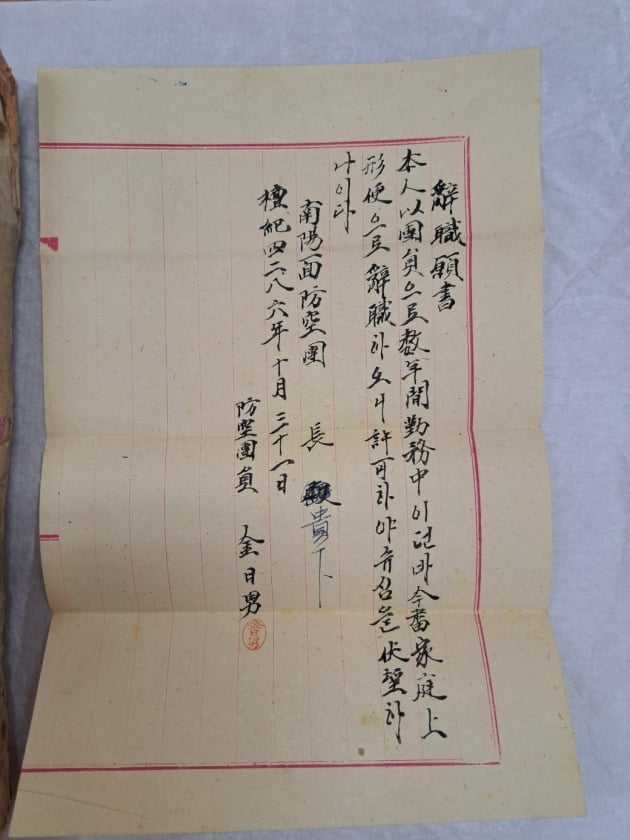 辭職願書
本人以團員으로数年間勤務中이던바今番家庭上
形便으로辭職하오니許可하야쥬심을伏望하
나이다
南陽面防空團 長 貴下
檀紀四二八六年十月三十一日
防空團員 金日男